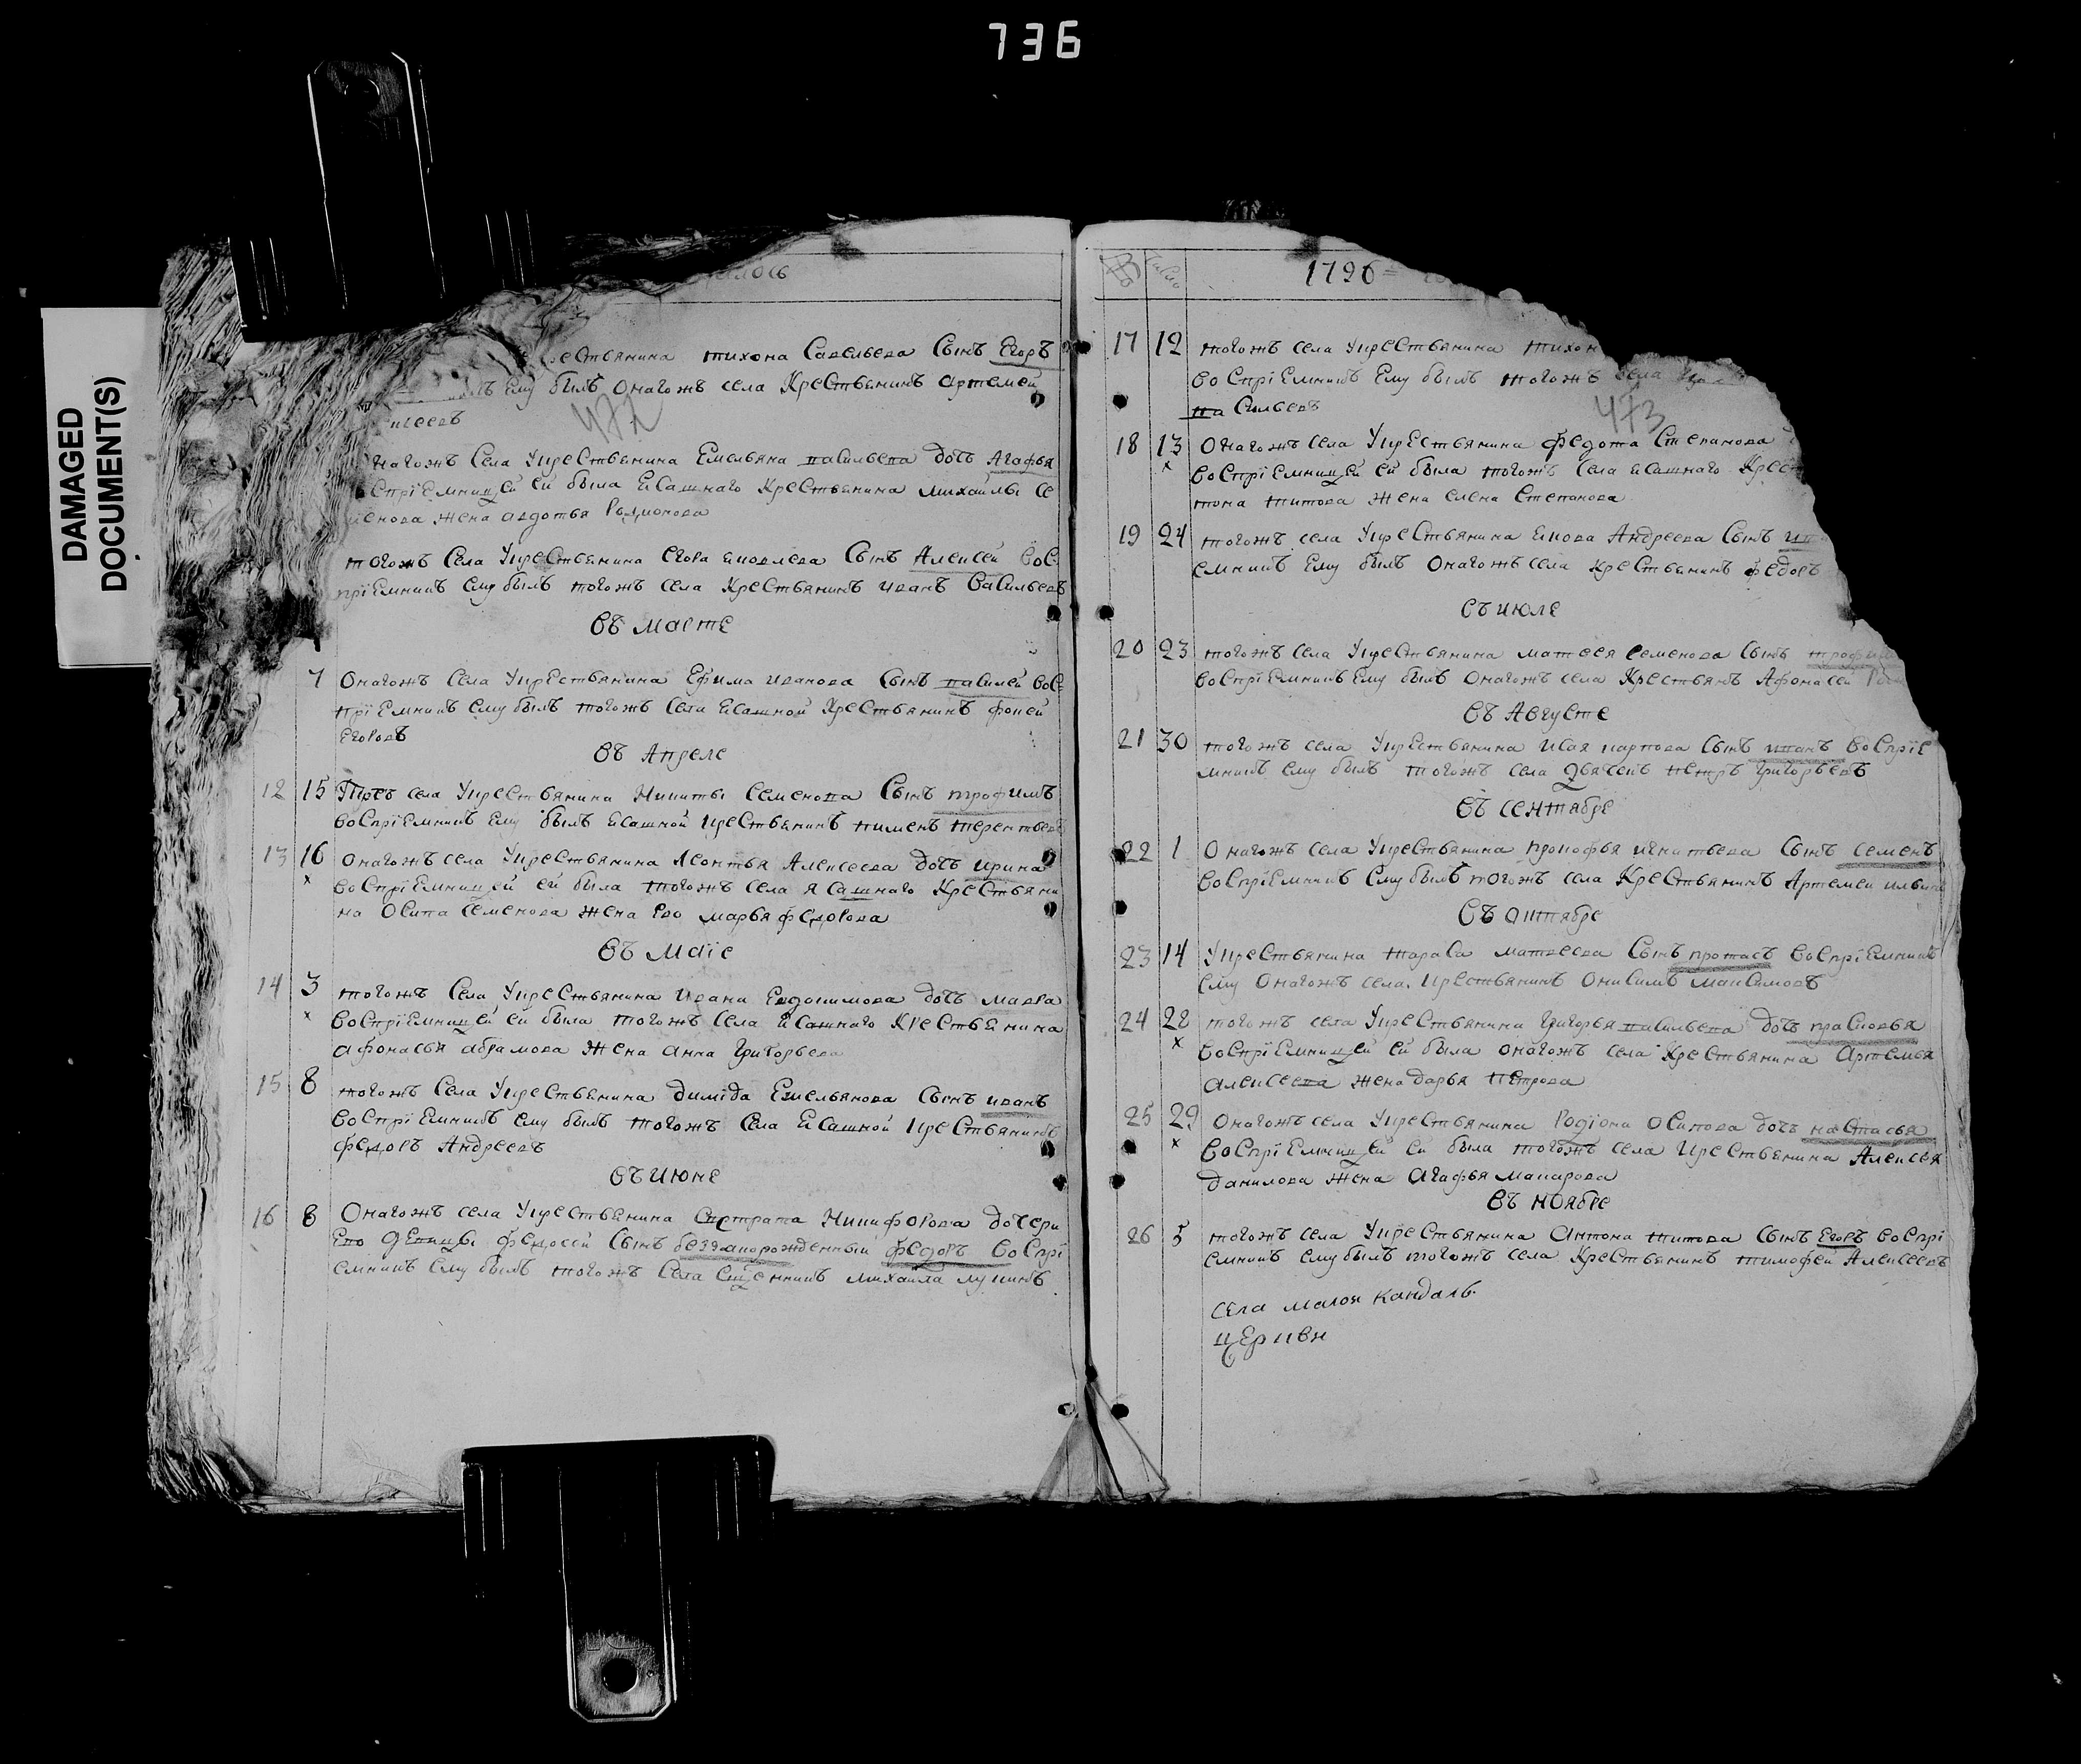 736
DAMAGED
DOCUMENT(S)
472
тихона Савельева Сынъ Егоръ
ему былъ онагожъ села Крестьянинъ артемей
нагожъ Села Укрестьянина Емельяна васильева дочь Агафья
спрїемницей ей была Ясашнаго Крестьянина михайлы Се
менова жена авдотья Родионова
тогожъ Села Укрестьянина Егора яковлева Сынъ Алексей Вос
прїемникъ ему былъ тогожъ села Крестьянинъ иванъ Васильевъ
въ марте
7 Онагожъ Села Укрестьянина Ефима иванова Сынъ василей вос
прїемникъ ему былъ тогожъ села Ясашной Крестьянинъ фокей
Егоровъ
въ Апреле
12 15 села Укрестьянина Никиты Семенова Сынъ трофимъ
воспрїемникъ ему былъ Ясашной крестьянинъ пименъ терентьев
13 16 онагожъ села Укрестьянина Леонтья Алексеева дочь ирина
х воспрїемницей ей была тогожъ села ясашнаго Крестьяни
на Осипа семенова жена ево марья федорова
въ Маїе
14 3 тогожъ Села Укрестьянина Ивана Евдокимова дочь мавра
х воспрїемницей ей была тогожъ села Ясашнаго Крестьянина
афонасья абрамова жена анна григорьева
15 8 тогожъ Села Укрестьянина димїда Емельянова Сынъ иванъ
воспрїемникъ ему былъ тогожъ Села Ясашной крестьянинъ
федоръ Андреевъ
въ июне
16 8 Онагожъ села Укрестьянина Никифорова дочери
ево девицы федосьи Сынъ беззаконорожденный федоръ воспрї
емникъ ему былъ тогожъ Села Сщенникъ михаила лукинъ
1796
473
17 12 тогожъ села Укрестьянина тихон
воспрїемникъ ему былъ тогожъ села
васильевъ
18 13 Онагожъ села Укрестьянина федота Степанова
х воспрїемницей ей была тогожъ села ясашнаго Крест
тона титова жена елена Степанова
19 24 тогожъ села Укрестьянина якова Андреева Сынъ
емникъ ему былъ Онагожъ села крестьянинъ федоръ
въ июле
20 23 тогожъ села Укрестьянина матвея семенова Сынъ трофи
воспрїемникъ ему былъ Онагожъ села Крестьянъ Афонасей
въ Августе
21 30 тогожъ села Укрестьянина Исая карпова Сынъ иванъ воспрїе
мникъ ему былъ тогожъ села дьячекъ петръ григорьевъ
въ сентябре
22 1 Онагожъ села Укрестьянина прокофья игнатьева Сынъ семенъ
воспрїемникъ ему былъ тогожъ села Крестьянинъ Артемеи ильин
въ октябре
23 14 Укрестьянина тараса матвеева Сынъ протасъ воспрїемникъ
ему Онагожъ села крестьянинъ Онисимъ максимовъ
24 22 тогожъ села Укрестьянина григорья васильева дочь прасковья
х воспрїемницей ей была онагожъ села Крестьянина Артемья
алексеева жена дарья петрова
25 29 Онагожъ села Укрестьянина Родїона осипова дочь настасья
х воспрїемницей ей была тогожъ села крестьянина Алексея
данилова жена Агафья макарова
въ ноябре
26 5 тогожъ села Укрестьянина антона титова Сынъ Егоръ воспрї
емникъ ему былъ тогожъ села Крестьянинъ тимофей Алексеевъ
села малой кандалы
церкви